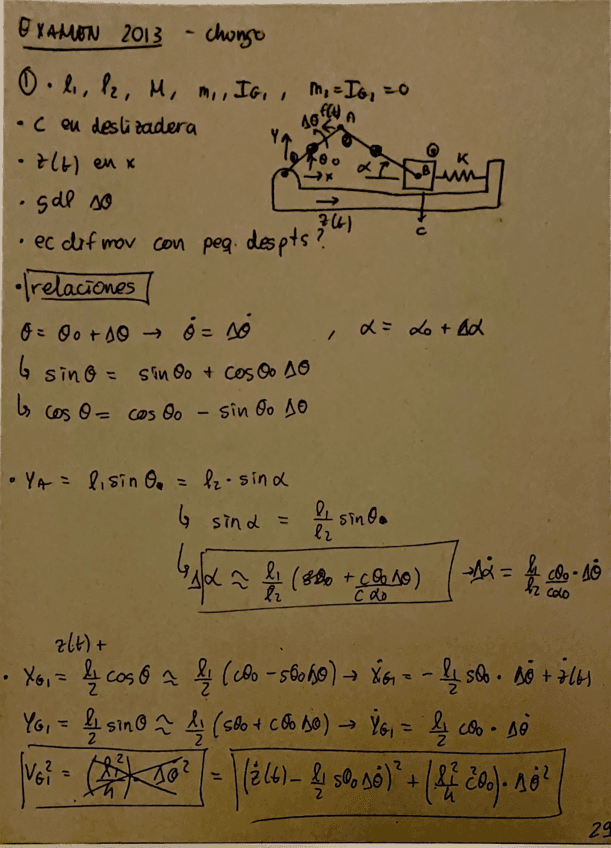 EXAMEN 2013 - chongo
① • l₁, l₂, M, m₁, I_G₁, m₂=I_G₁=0
• C en deslizadera
• z(t) en x
• gdl Δθ
• ec dif mov con peq. despts?
f(t) A
Δθ
Y
θ θ₀
x
α
B
K
G
z(t)
C
• relaciones
θ = θ₀ + Δθ → θ̇ = Δθ̇ , α = α₀ + Δα
↳ sinθ = sinθ₀ + cosθ₀ Δθ
↳ cos θ = cos θ₀ - sin θ₀ Δθ
• Y_A = l₁ sin θ. = l₂ · sin α
↳ sin α = l₁/l₂ sin θ.
↳ Δα ≈ l₁/l₂ (sθ₀ + cθ₀ Δθ / cα₀) → Δα̇ = l₁/l₂ cθ₀/cα₀ · Δθ̇
z(t) +
• X_G₁ = l₁/2 cos θ ≈ l₁/2 (cθ₀ - sθ₀Δθ) → Ẋ_G₁ = - l₁/2 sθ₀ · Δθ̇ + ż(t)
Y_G₁ = l₁/2 sin θ ≈ l₁/2 (sθ₀ + cθ₀ Δθ) → Ẏ_G₁ = l₁/2 cθ₀ · Δθ̇
V_G₁² = (l₁²/4) Δθ̇² = (ż(t) - l₁/2 sθ₀ Δθ̇)² + (l₁²/4 c²θ₀) · Δθ̇²
29